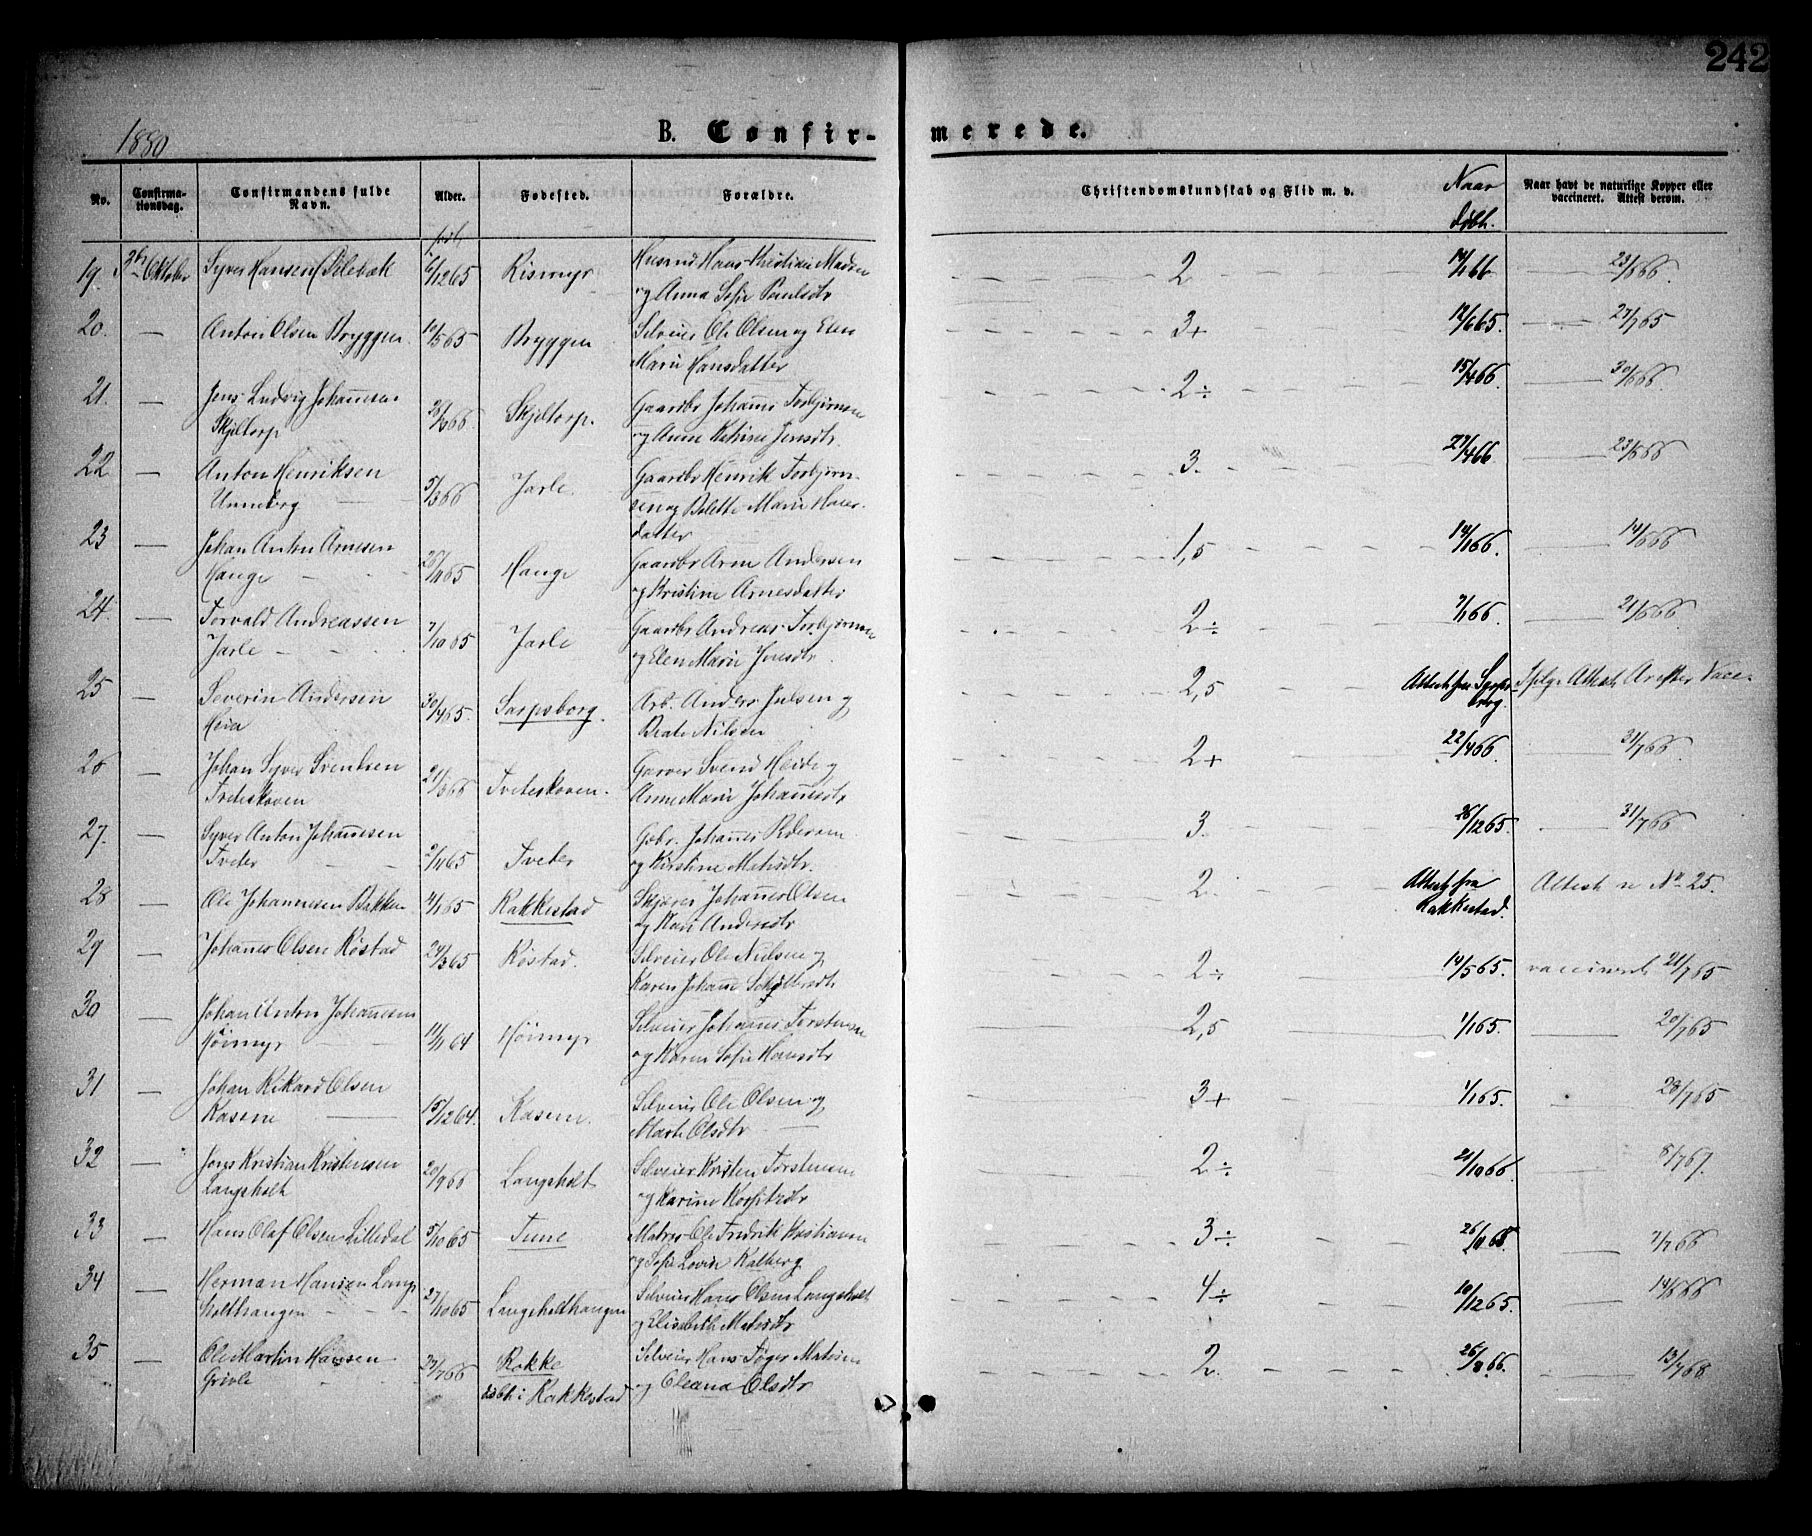 242
1880
B. Confir-merede.
No.
Confirmationsdag.
Confirmandens fulde Navn.
Alder.
Fødested.
Forældre.
Christendomskundskab og Flid m. v.
Naar døbt.
Naar havt de naturlige Kopper eller vaccineret. Attest derom.
19. 3die Oktober Syver Hansen 6/12 65 Rismyr Husmd Hans Kristian Madsen 2 14/1 66 23/6 66
og Anna Sofie Poulsdtr
20. — Anton Olsen Bryggen 10/5 65 Bryggen Selveier Ole Olsen og Elen 3+ 12/6 65. 27/7 65
Marie Hansdatter
21. — Jens Ludvig Johannesen 26/2 66 Skjeltorp. Gaardbr Johannes Torbjørnsen 2÷ 15/4 66 30/6 66
Skjeltorp og Anne Katrine Jensdtr.
22 — Anton Henriksen 5/3 66 Jarle. Gaardbr Henrik Torbjørn- 3. 27/4 66 23/6 66
Unneberg sen og Bolette Marie Hans-
datter
23 — Johan Anton Arnesen 28/11 65 Hauge Gaardbr Arne Andersen 1,5 14/1 66. 14/6 66
Hauge og Kristine Arnesdatter
24. — Torvald Andreassen 7/10 65 Jarle Gaardbr Andreas Torbjørnsen 2÷ 7/1 66 21/6 66
Jarle og Elen Marie Jensdtr.
25 — Severin Andersen 30/4 65. Sarpsborg. Arb. Anders Julsen og 2,5 Attest fra Sarps- Ifølge Attest
Beate Nilsen borg.
26 — Johan Syver Svendsen 21/3 66 Tveteskoven. Garver Svend og 2+ 22/4 66 31/7 66
Tveteskoven Anne Marie Johannesdtr
27. — Syver Anton Johannesen 2/11 65 Tveter Gbr. Johannes Pedersen 3. 26/12 65. 31/7 66
Tveter og Kirstine Matisdtr.
28 — Ole Johannesen Bakken 4/1 65 Rakkestad Johannes Olsen 2. Attest fra Attest se No 25.
og Kari Andersdtr Rakkestad.
29 — Johannes Olsen Røstad 24/3 65 Røstad. Selveier Ole Nielsen og 2÷ 14/5 65. vaccineret 21/7 65
Karen Johanne
30 — Johan Anton Johannesen 11/11 64 Høimyr Selveier Johannes Torstensen 2,5 1/1 65. 20/7 65
Høimyr og Karen Sofie Hansdtr
31 — Johan Rikard Olsen 15/12 64. Kasene. Selveier Ole Olsen og 3+ 1/1 65. 28/7 65
Kasene Marte Olsdtr
32 — Jens Kristian Kristensen 20/9 66 Langsholt Selveier Kristen Torstensen 2÷ 21/10 66. 8/7 67.
Langsholt og Karine
33 — Hans Olaf Olsen Lilledal 5/10 65 Tune Matros Ole Fredrik Kristiansen 3÷ 7/7 66
og Sofie Lovise Kalberg
34 — Herman Hansen Langs- 27/10 65 Langsholthaugen Selveier Hans Olsen Langsholt 4÷ 10/12 65. 14/6 66
holthaugen og Elisabeth Matisdtr
35 — Ole Martin Hansen 29/7 66 Rokke Selveier Hans Matisen 2. 26/8 66. 13/7 68.
døbt i Rakkestad og Oleana Olsdtr